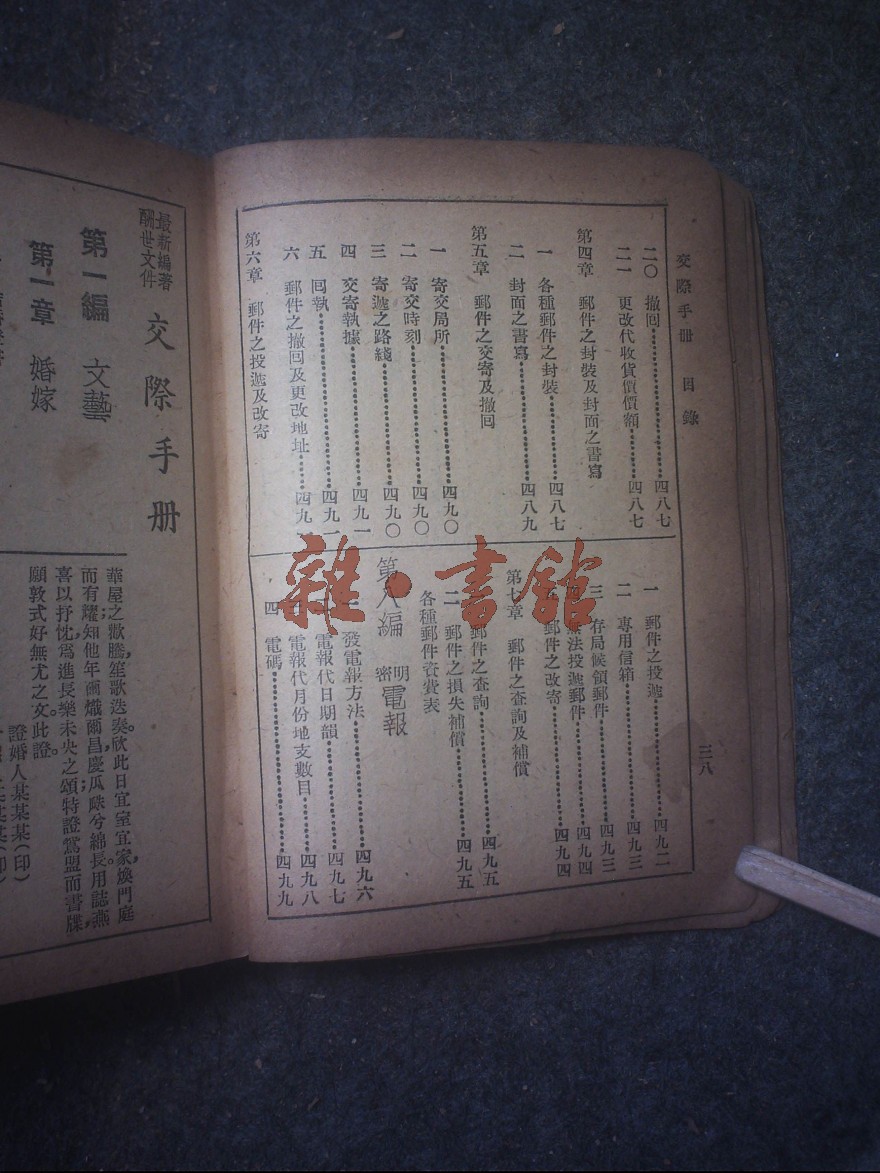 交際手册 目錄
三八
二〇 撤回 四八七
二一 更改代收貨價價額 四八七
第四章 郵件之封裝及封面之書寫
一 各種郵件之封裝 四八七
二 封面之書寫 四八九
第五章 郵件之交寄及撤回
一 寄交局所 四九〇
二 寄交時刻 四九〇
三 寄遞之路綫 四九〇
四 交寄執據 四九一
五 回執 四九
六 郵件之撤回及更改地址 四九
第六章 郵件之投遞及改寄
一 郵件之投遞 四九二
二 專用信箱 四九三
三 存局候領郵件 四九三
無法投遞郵件 四九四
郵件之改寄 四九四
第七章 郵件之查詢及補償
郵件之查詢 四九五
二 郵件之損失補償 四九五
各種郵件資費表
第八編 明密電報
發電報方法 四九六
電報代日期韻 四九七
電報代月份地支數目 四九八
四 電碼 四九九
雜·書館
最新編著
酬世文件
交際手册
第一編 文藝
第一章 婚嫁
華屋之歡騰,笙歌迭奏。欣此日宜室宜家,煥門庭
而有耀;知他年爾熾爾昌,慶瓜瓞兮綿長。用誌燕
喜以抒忱,爲進長樂未央之頌;特證鴛盟而書牒,
願敦式好無尤之文。此證。
證婚人某某某(印)